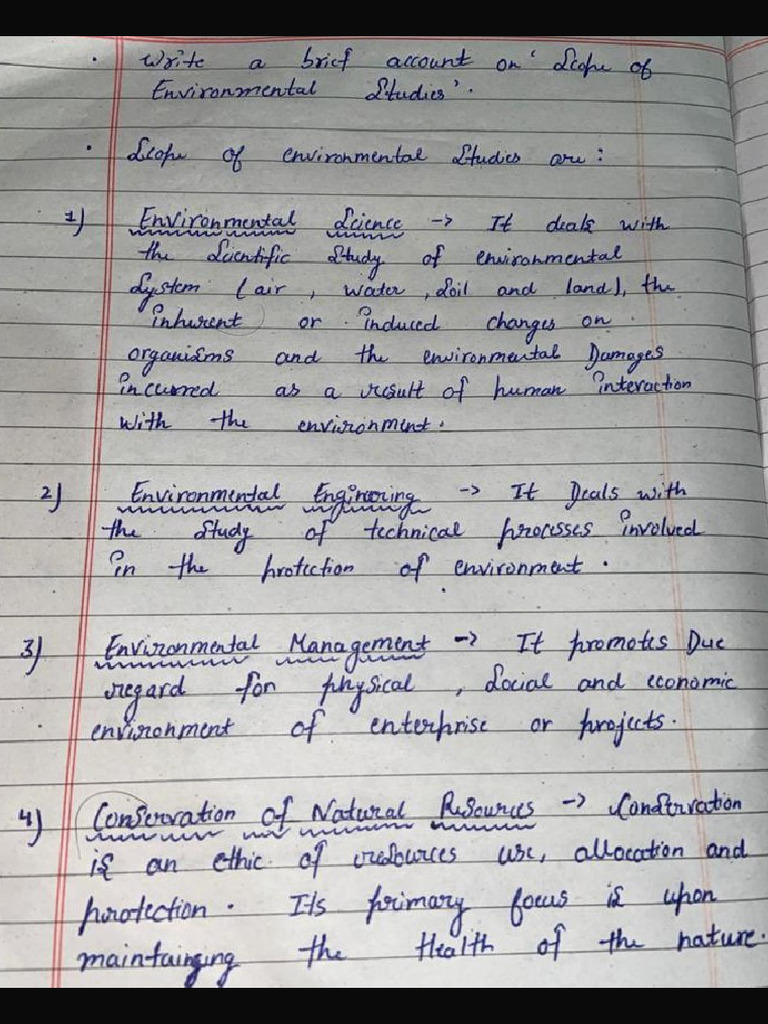 • Write a brief account on 'Scope of
Environmental Studies'.
• Scope of environmental Studies are:
1) Environmental Science -> It deals with
the Scientific Study of environmental
System (air, water, Soil and land), the
inhurent or induced changes on
organisms and the environmental Damages
incurred as a result of human interaction
with the environment.
2) Environmental Enginering -> It Deals with
the Study of technical processes involved
in the protection of environment.
3) Environmental Management -> It promotes Due
regard for physical, Social and economic
environment of enterprise or projects.
4) Conservation of Natural Resources -> Conservation
is an ethic of resources use, allocation and
protection. Its primary focus is upon
maintainging the Health of the nature.